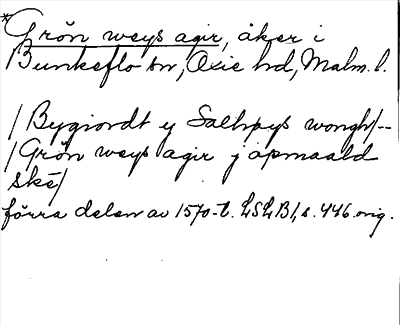 *Grön weys agir, åker i
Bunkeflo sn, Oxie hd, Malm. l.
/ Bygiordt y Salhpys wongh/--
/ Grön weys agir j apmaald
ske/
förra delen av 1570-t. LSLB1, s. 446 orig.